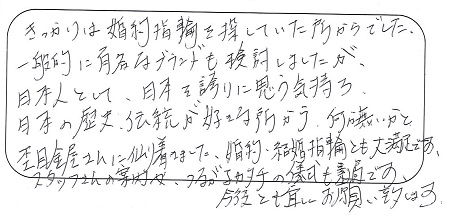 きっかけは婚約指輪を探していた所からでした。
一般的に有名なブランドも検討しましたが、
日本人として、日本を誇りに思う気持ち
日本の歴史、伝統が好きな所から、何か無いかと
杢目金屋さんに辿り着きました。婚約・結婚指輪とも大満足です。
スタッフさんの案内や、つながるカタチの儀式も素敵です。
今後とも宜しくお願い致します。